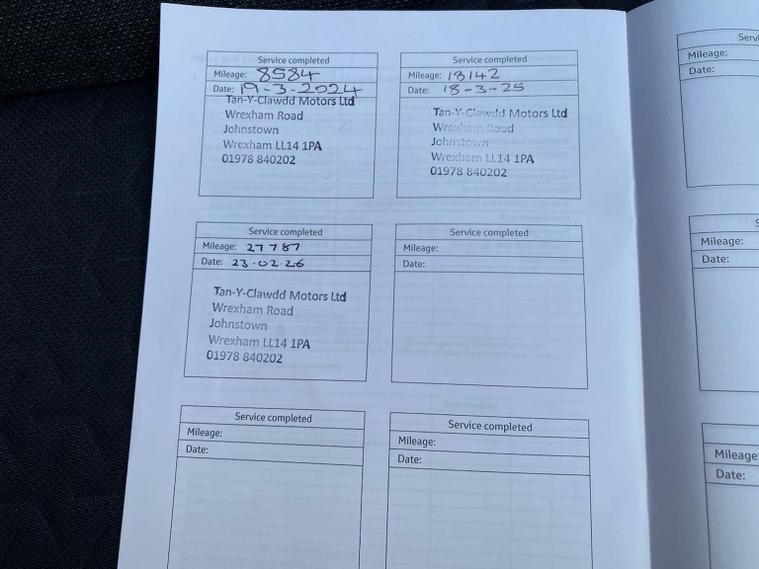 Service completed
Mileage: 8584
Date: 19-3-2024
Tan-Y-Clawdd Motors Ltd
Wrexham Road
Johnstown
Wrexham LL14 1PA
01978 840202
Service completed
Mileage: 18142
Date: 18-3-25
Tan-Y-Clawdd Motors Ltd
Wrexham Road
Johnstown
Wrexham LL14 1PA
01978 840202
Service completed
Mileage: 27787
Date: 23.02.26
Tan-Y-Clawdd Motors Ltd
Wrexham Road
Johnstown
Wrexham LL14 1PA
01978 840202
Service completed
Mileage:
Date:
Service completed
Mileage:
Date:
Service completed
Mileage:
Date:
Mileage:
Date:
Mileage:
Date:
Mileage:
Date: